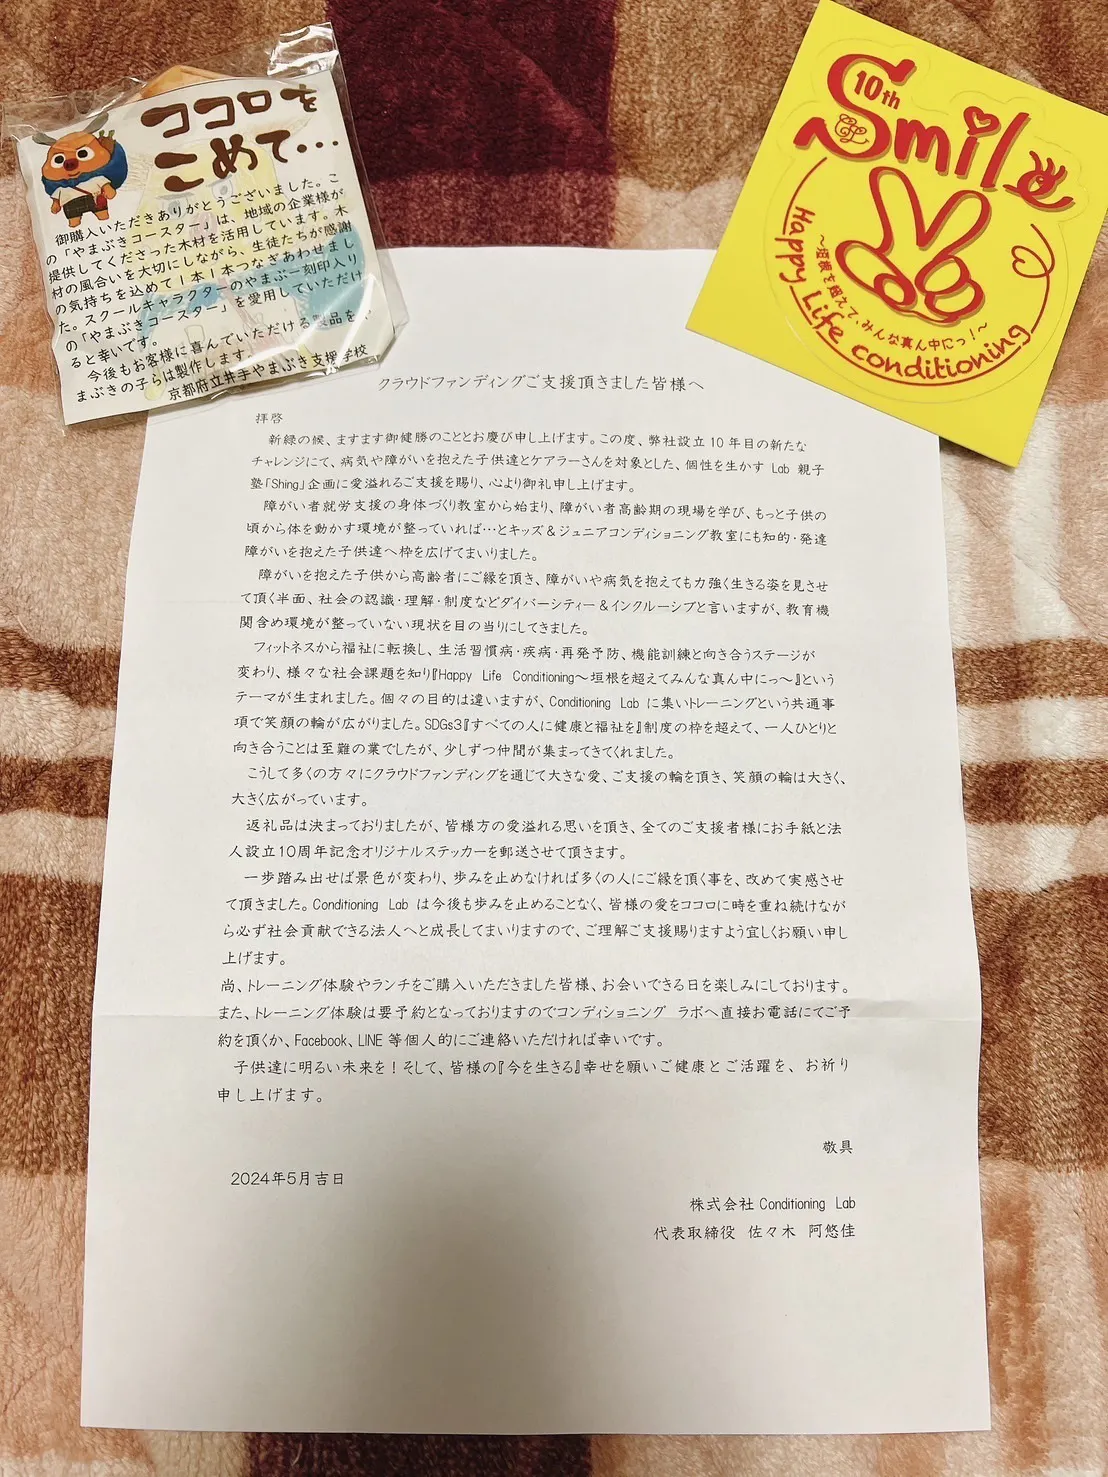 ココロを
こめて…
御購入いただきありがとうございました。こ
の「やまぶきコースター」は、地域の企業様が
提供してくださった木材を活用しています。木
材の風合いを大切にしながら、生徒たちが感謝
の気持ちを込めて1本1本つなぎあわせまし
た。スクールキャラクターのやまぶー刻印入り
の「やまぶきコースター」を愛用していただけ
ると幸いです。
今後もお客様に喜んでいただける製品を
まぶきの子らは製作します。
京都府立井手やまぶき支援学校
10th
Smile
Happy Life conditioning
~垣根を超えて、みんな真ん中にっ!~
クラウドファンディングご支援頂きました皆様へ
拝啓
新緑の候、ますます御健勝のこととお慶び申し上げます。この度、弊社設立10年目の新たな
チャレンジにて、病気や障がいを抱えた子供達とケアラーさんを対象とした、個性を生かす Lab 親子
塾「Shing」企画に愛溢れるご支援を賜り、心より御礼申し上げます。
障がい者就労支援の身体づくり教室から始まり、障がい者高齢期の現場を学び、もっと子供の
頃から体を動かす環境が整っていれば…とキッズ&ジュニアコンディショニング教室にも知的・発達
障がいを抱えた子供達へ枠を広げてまいりました。
障がいを抱えた子供から高齢者にご縁を頂き、障がいや病気を抱えても力強く生きる姿を見させ
て頂く半面、社会の認識・理解・制度などダイバーシティー&インクルーシブと言いますが、教育機
関含め環境が整っていない現状を目の当りにしてきました。
フィットネスから福祉に転換し、生活習慣病・疾病・再発予防、機能訓練と向き合うステージが
変わり、様々な社会課題を知り『Happy Life Conditioning~垣根を超えてみんな真ん中にっ~』という
テーマが生まれました。個々の目的は違いますが、Conditioning Lab に集いトレーニングという共通事
項で笑顔の輪が広がりました。SDGs3『すべての人に健康と福祉を』制度の枠を超えて、一人ひとりと
向き合うことは至難の業でしたが、少しずつ仲間が集まってきてくれました。
こうして多くの方々にクラウドファンディングを通じて大きな愛、ご支援の輪を頂き、笑顔の輪は大きく、
大きく広がっています。
返礼品は決まっておりましたが、皆様方の愛溢れる思いを頂き、全てのご支援者様にお手紙と法
人設立10周年記念オリジナルステッカーを郵送させて頂きます。
一歩踏み出せば景色が変わり、歩みを止めなければ多くの人にご縁を頂く事を、改めて実感させ
て頂きました。Conditioning Lab は今後も歩みを止めることなく、皆様の愛をココロに時を重ね続けなが
ら必ず社会貢献できる法人へと成長してまいりますので、ご理解ご支援賜りますよう宜しくお願い申し
上げます。
尚、トレーニング体験やランチをご購入いただきました皆様、お会いできる日を楽しみにしております。
また、トレーニング体験は要予約となっておりますのでコンディショニング ラボへ直接お電話にてご予
約を頂くか、Facebook、LINE 等個人的にご連絡いただければ幸いです。
子供達に明るい未来を！そして、皆様の『今を生きる』幸せを願いご健康とご活躍を、お祈り
申し上げます。
敬具
2024年5月吉日
株式会社 Conditioning Lab
代表取締役 佐々木 阿悠佳